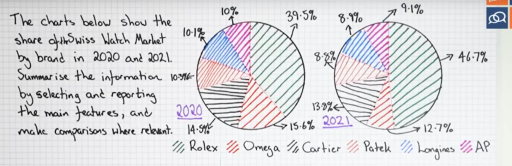 The charts below show the
share of the Swiss Watch Market
by brand in 2020 and 2021.
Summarise the information
by selecting and reporting
the main features, and
make comparisons where relevant.
10%
39.5%
10.1%
2020
14.5%
15.6%
8.9%
9.1%
46.7%
8.8%
13.8%
2021
12.7%
Rolex Omega Cartier Patek Longines AP